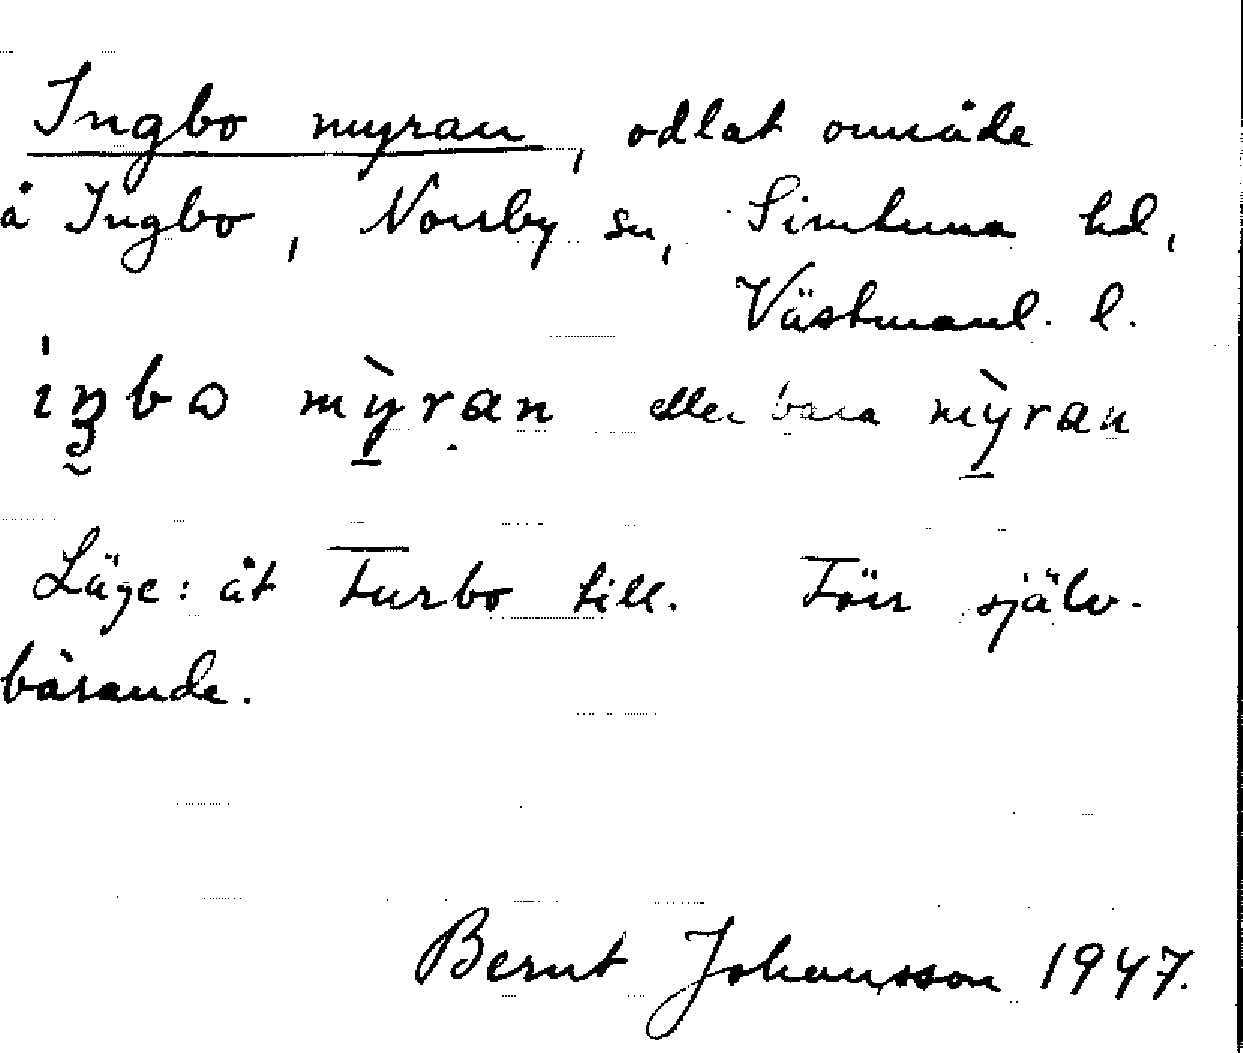 Ingbo myran, odlat område
å Ingbo, Norrby sn, Simtuna hd,
Västmanl. l.
eller bara
Läge: åt Turbo till. Förr själv-
bärande.
Bernt Johansson 1947.